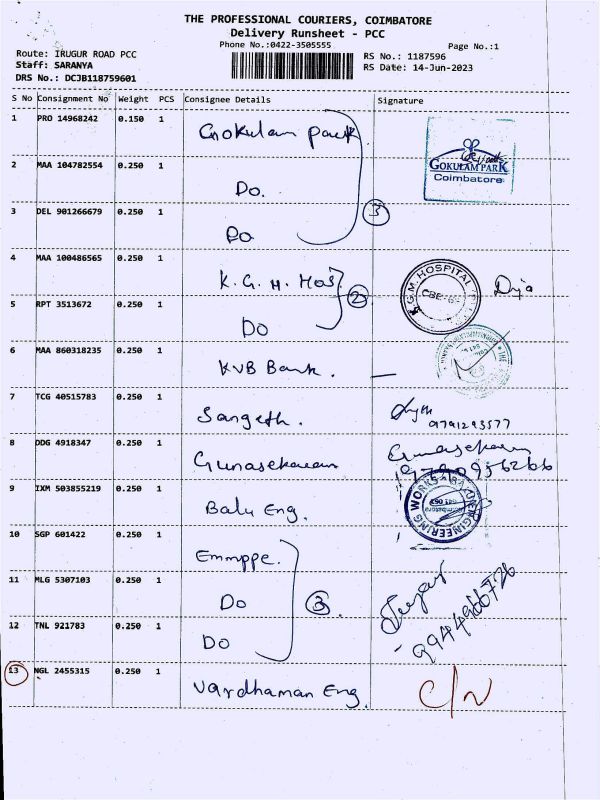 THE PROFESSIONAL COURIERS, COIMBATORE
Delivery Runsheet - PCC
Phone No.:0422-3505555
Page No.:1
Route: IRUGUR ROAD PCC
Staff: SARANYA
DRS No.: DCJB118759601
RS No.: 1187596
RS Date: 14-Jun-2023
S No Consignment No Weight PCS Consignee Details Signature
1 PRO 14968242 0.150 1 Gokulam park
GOKULAM PARK
Coimbatore
2 MAA 104782554 0.250 1 Do.
3 DEL 901266679 0.250 1 Do
3
4 MAA 100486565 0.250 1 K.G.H. Hos
K.G.M. HOSPITAL
CBE-
2
5 RPT 3513672 0.250 1 Do
6 MAA 860318235 0.250 1 KVB Bank. —
7 TCG 40515783 0.250 1 Sangeth.
9791293577
8 DDG 4918347 0.250 1 Gunasekaran Gunasekaran
9 IXM 503855219 0.250 1 Balu Eng.
ENGINEERING WORKS
10 SGP 601422 0.250 1 Emmppe.
11 MLG 5307103 0.250 1 Do
3
12 TNL 921783 0.250 1 Do
13 NGL 2455315 0.250 1 Vardhaman Eng. C/N